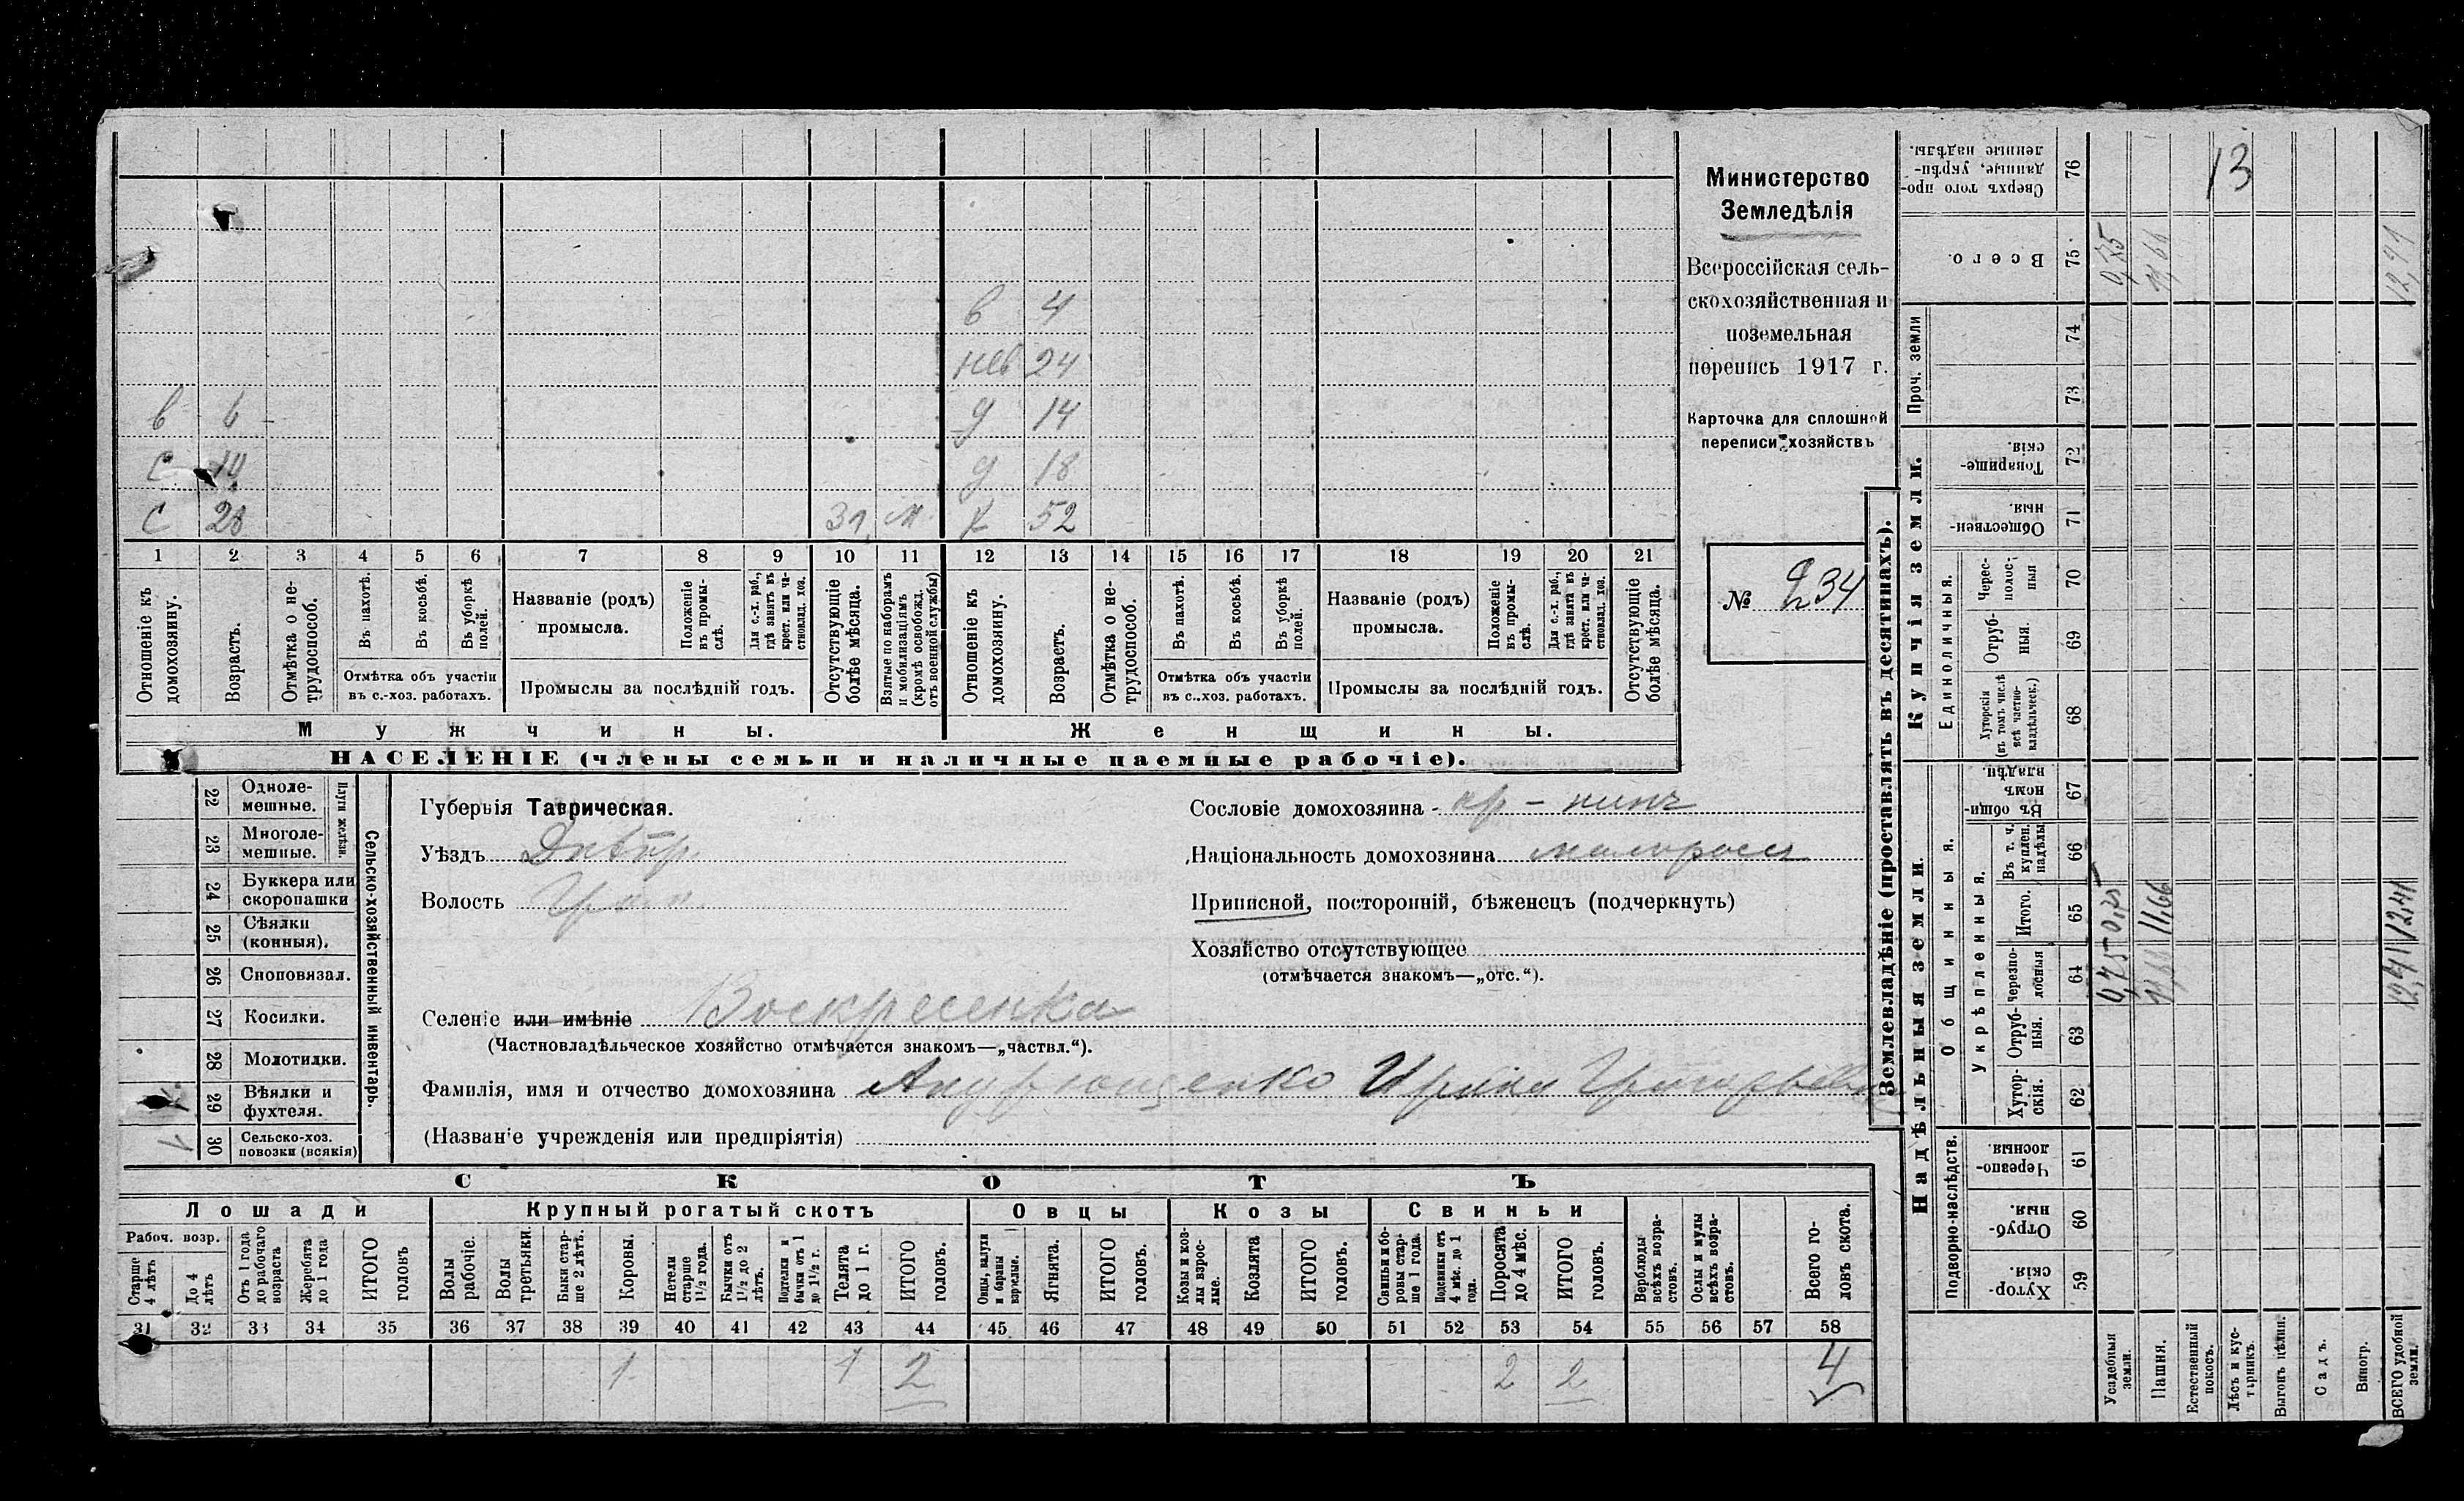 в 4
нев 24
в 6 д 14
с д 18
с 28 м. х 52
1 2 3 4 5 6 7 8 9 10 11 12 13 14 15 16 17 18 19 20 21
Отношеніе къ домохозяину.
Возрастъ.
Отмѣтка о не-
трудоспособ.
Въ пахотѣ.
Въ косьбѣ.
Въ уборкѣ
полей.
Отмѣтка объ участіи
въ с.-хоз. работахъ.
Названіе (родъ)
промысла.
Положеніе
въ промы-
слѣ.
Для с.-х. раб.,
гдѣ занятъ въ
крест. или ча-
стновлад. хоз.
Промыслы за послѣдній годъ.
Отсутствующіе
болѣе мѣсяца.
Взятые по наборамъ
и мобилизаціямъ
(кромѣ освобожд.
отъ военной службы)
Отношеніе къ
домохозяину.
Возрастъ.
Отмѣтка о не-
трудоспособ.
Въ пахотѣ.
Въ косьбѣ.
Въ уборкѣ
полей.
Отмѣтка объ участіи
въ с.-хоз. работахъ.
Названіе (родъ)
промысла.
Положеніе
въ промы-
слѣ.
Для с.-х. раб.,
гдѣ занята въ
крест. или ча-
стновлад. хоз.
Промыслы за послѣдній годъ.
Отсутствующіе
болѣе мѣсяца.
Мужчины. Женщины.
НАСЕЛЕНІЕ (члены семьи и наличные наемные рабочіе).
Министерство
Земледѣлія
Всероссійская сель-
скохозяйственная и
поземельная
перепись 1917 г.
Карточка для сплошной
переписи хозяйствъ
№ 234
22 Одноле-
мешные.
23 Многоле-
мешные.
Плуги желѣзн.
24 Буккера или
скоропашки
25 Сѣялки
(конныя).
26 Сноповязал.
27 Косилки.
28 Молотилки.
29 Вѣялки и
фухтеля.
30 Сельско-хоз.
повозки (всякія)
Сельско-хозяйственный инвентарь.
Губернія Таврическая.
Уѣздъ Днѣпр.
Волость
Селеніе или имѣніе Воскресенка
(Частновладѣльческое хозяйство отмѣчается знакомъ—„частвл.“).
Фамилія, имя и отчество домохозяина Андрющенко Ирина Григорьевна
(Названіе учрежденія или предпріятія)
Сословіе домохозяина кр-нинъ
Національность домохозяина малоросс
Приписной, посторонній, бѣженецъ (подчеркнуть)
Хозяйство отсутствующее
(отмѣчается знакомъ—„отс.“).
СКОТЪ
Лошади
Рабоч. возр.
Старше
4 лѣтъ
До 4
лѣтъ
Отъ 1 года
до рабочаго
возраста
Жеребята
до 1 года
ИТОГО
головъ
Крупный рогатый скотъ
Волы
рабочіе.
Волы
третьяки.
Быки стар-
ше 2 лѣтъ.
Коровы.
Нетели
старше
1½ года.
Бычки отъ
1½ до 2
лѣтъ.
Подтелки и
бычки отъ 1
до 1½ г.
Телята
до 1 г.
ИТОГО
головъ.
Овцы
Овцы, валухи
и бараны
взрослые.
Ягнята.
ИТОГО
головъ.
Козы
Козы и коз-
лы взрос-
лые.
Козлята
ИТОГО
головъ.
Свиньи
Свиньи и бо-
ровы стар-
ше 1 года.
Подсвинки отъ
4 мѣс. до 1
года.
Поросята
до 4 мѣс.
ИТОГО
головъ.
Верблюды
всѣхъ возра-
стовъ.
Ослы и мулы
всѣхъ возра-
стовъ.
Всего го-
ловъ скота.
31 32 33 34 35 36 37 38 39 40 41 42 43 44 45 46 47 48 49 50 51 52 53 54 55 56 57 58
1 1 2 2 2 4
Землевладѣніе (проставлять въ десятинахъ).
Надѣльныя земли.
Подворно-наслѣдств.
59 Хутор-
скія.
60 Отруб-
ныя.
61 Черезпо-
лосныя.
Общинныя.
Укрѣпленныя.
62 Хутор-
скія.
63 Отруб-
ныя.
64 Черезпо-
лосныя
65 Итого.
66 Въ т. ч.
куплен.
надѣлы
67 Въ общи-
номъ
владѣн.
Купчія земли.
Единоличныя.
68 Хуторскія
(въ томъ числѣ
всѣ частно-
владѣльческ.)
69 Отруб-
ныя.
70 Черес-
полос-
ныя
71 Обществен-
ныя.
72 Товарище-
скія.
Проч. земли
73
74
75 Всего.
76 Сверхъ того про-
данные, укрѣп-
ленные надѣлы.
Усадебныя
земли.
0,75 0,75 0,75
Пашня.
11,66 11,66 11,66
Естественный
покосъ.
13
Лѣсъ и кус-
тарникъ.
Выгонъ цѣлин.
Садъ.
Виногр.
ВСЕГО удобной
земли.
12,41 12,41 12,41